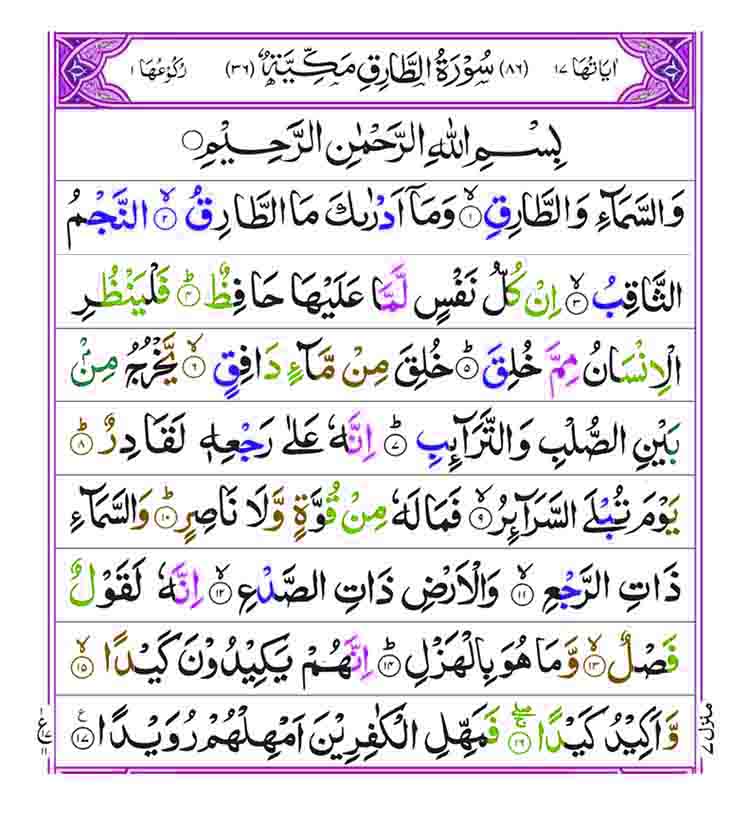 اٰیَاتُهَا ۱۷ (۸۶) سُوْرَةُ الطَّارِقِ مَكِّیَّةٌ (۳۶) رُكُوْعُهَا ۱
بِسْمِ اللّٰهِ الرَّحْمٰنِ الرَّحِیْمِ
وَالسَّمَآءِ وَالطَّارِقِ ۙ﴿۱﴾ وَمَاۤ اَدْرٰىكَ مَا الطَّارِقُ ۙ﴿۲﴾ النَّجْمُ
الثَّاقِبُ ۙ﴿۳﴾ اِنْ كُلُّ نَفْسٍ لَّمَّا عَلَیْهَا حَافِظٌ ؕ﴿۴﴾ فَلْیَنْظُرِ
الْاِنْسَانُ مِمَّ خُلِقَ ؕ﴿۵﴾ خُلِقَ مِنْ مَّآءٍ دَافِقٍ ۙ﴿۶﴾ یَّخْرُجُ مِنْۢ
بَیْنِ الصُّلْبِ وَالتَّرَآىِٕبِ ؕ﴿۷﴾ اِنَّهٗ عَلٰی رَجْعِهٖ لَقَادِرٌ ؕ﴿۸﴾
یَوْمَ تُبْلَی السَّرَآىِٕرُ ۙ﴿۹﴾ فَمَا لَهٗ مِنْ قُوَّةٍ وَّلَا نَاصِرٍ ؕ﴿۱۰﴾ وَالسَّمَآءِ
ذَاتِ الرَّجْعِ ۙ﴿۱۱﴾ وَالْاَرْضِ ذَاتِ الصَّدْعِ ۙ﴿۱۲﴾ اِنَّهٗ لَقَوْلٌ
فَصْلٌ ۙ﴿۱۳﴾ وَّمَا هُوَ بِالْهَزْلِ ؕ﴿۱۴﴾ اِنَّهُمْ یَكِیْدُوْنَ كَیْدًا ۙ﴿۱۵﴾
وَّاَكِیْدُ كَیْدًا ۚۖ﴿۱۶﴾ فَمَهِّلِ الْكٰفِرِیْنَ اَمْهِلْهُمْ رُوَیْدًا ﴿۱۷﴾ ع
منزل ۷
ع ۱ ۱۷ ۱۱